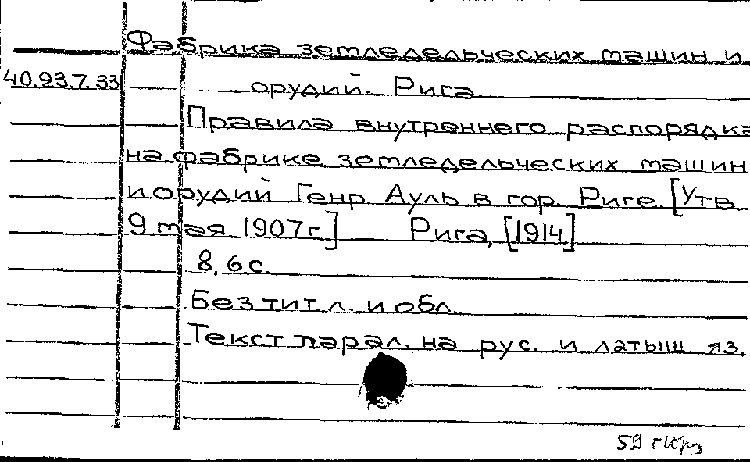 Фабрика земледельческих машин и
40.93.7.33 орудий. Рига
Правила внутреннего распорядка
на фабрике земледельческих машин
и орудий Генр. Ауль в гор. Риге. [Утв.
9 мая 1907 г.] Рига, [1914]
8, 6 с.
Без тит. л. и обл.
Текст парал. на рус. и латыш. яз.